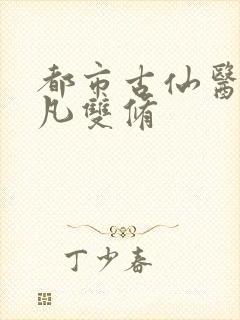 都市古仙醫
凡雙脩
丁少春